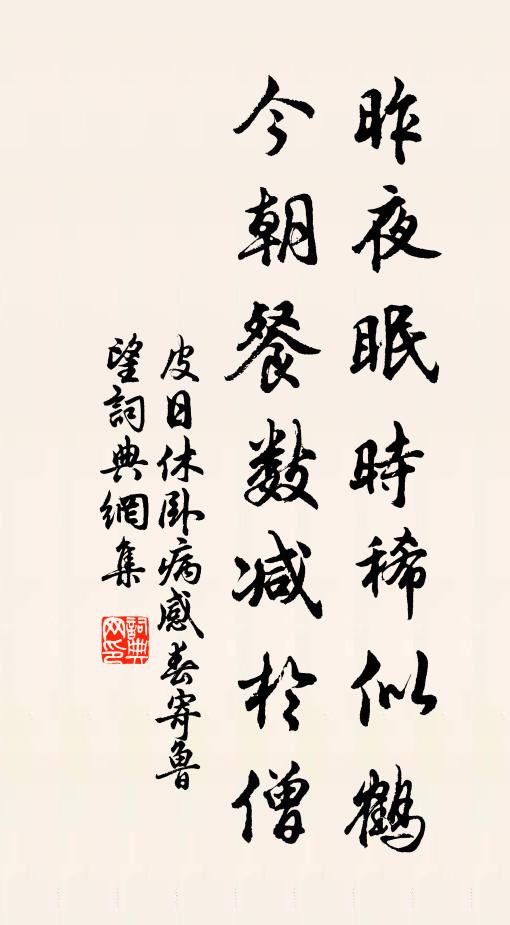 昨夜眠時稀似鶴
今朝餐数减於僧
皮日休卧病感春寄魯
望詞典網集
詞典网印